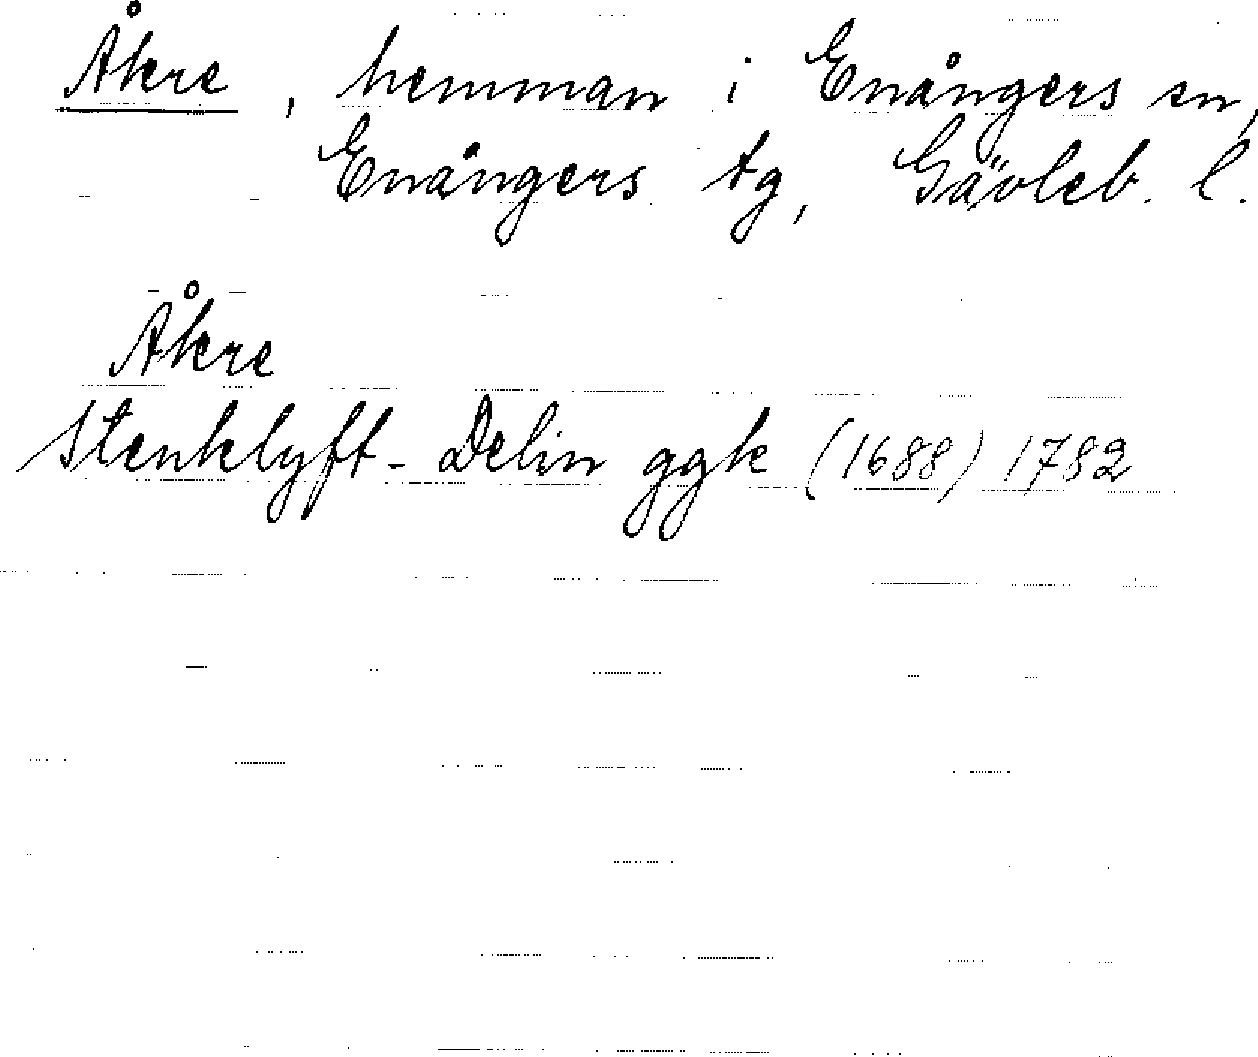 Åkre, hemman i Enångers sn,
Enångers tg, Gävleb. l.
Åkre
Stenklyft - Delin ggk (1688) 1782